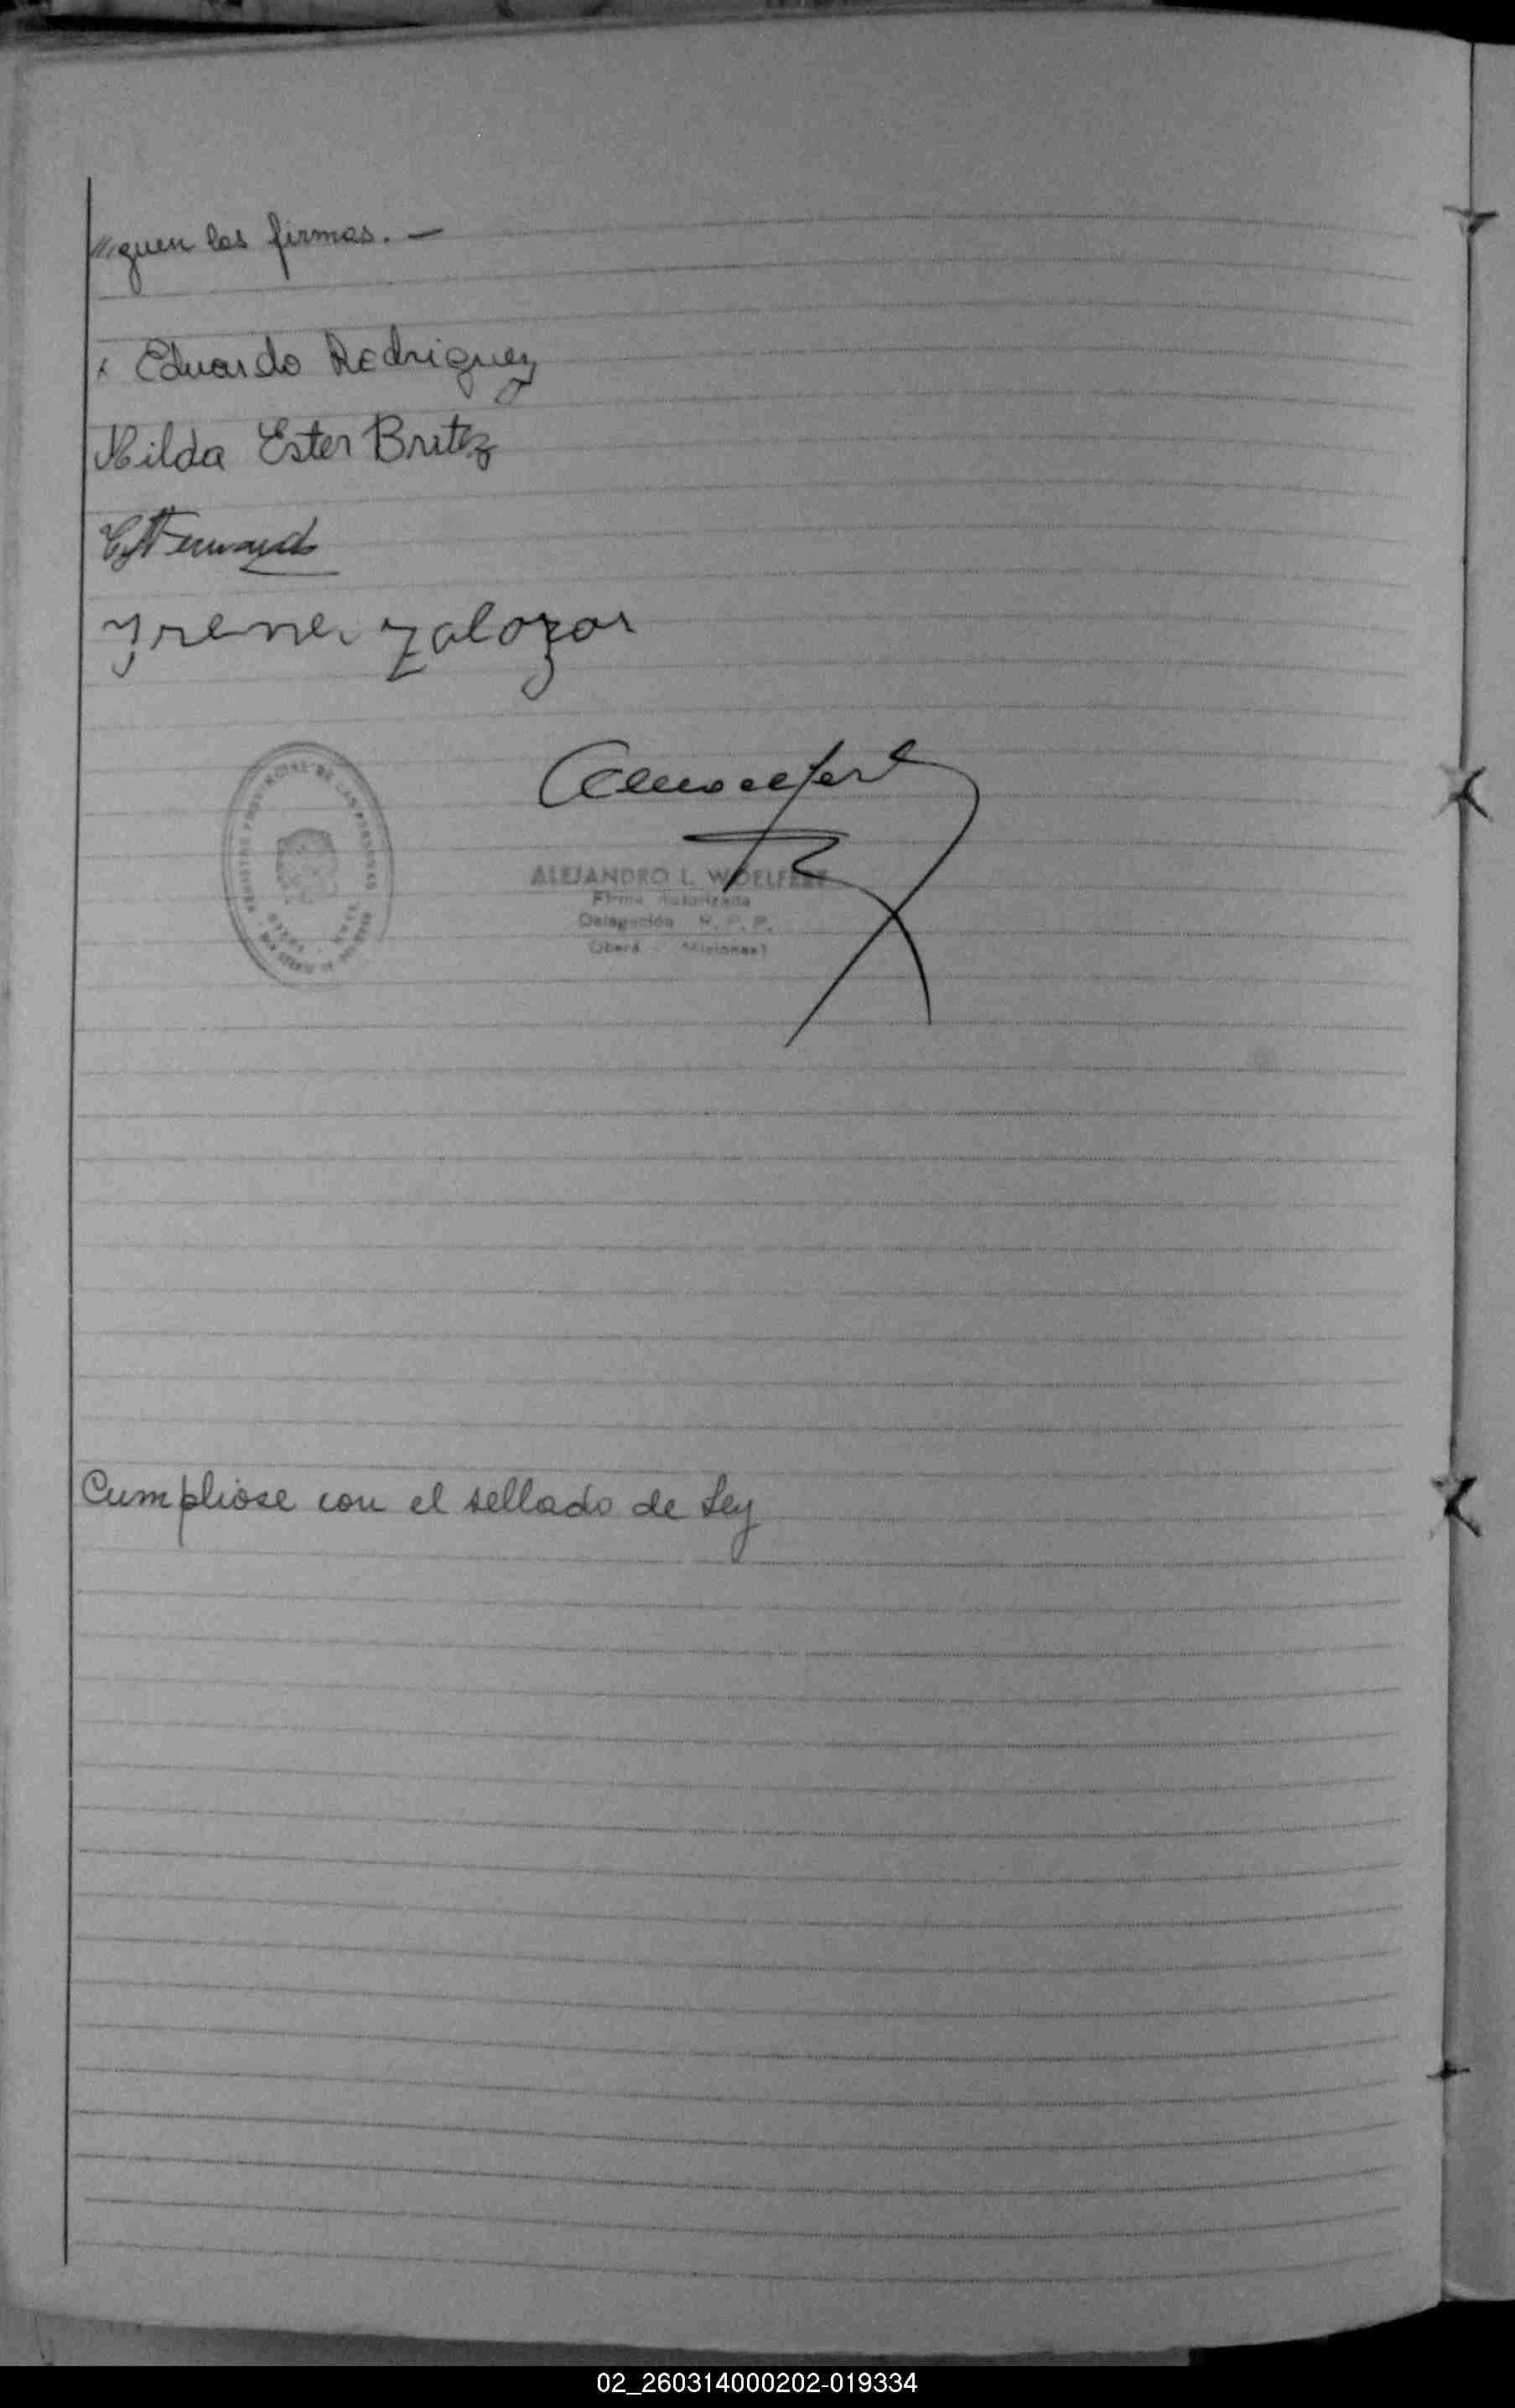 //guen las firmas. —
x Eduardo Rodriguez
Hilda Ester Britez
Yrene Zalozar
REGISTRO PROVINCIAL DE LAS PERSONAS
ALEJANDRO L. WOELFERT
Firma Autorizada
Delegación R. P. P.
Oberá (Misiones)
Cumpliose con el sellado de Ley
02_260314000202-019334